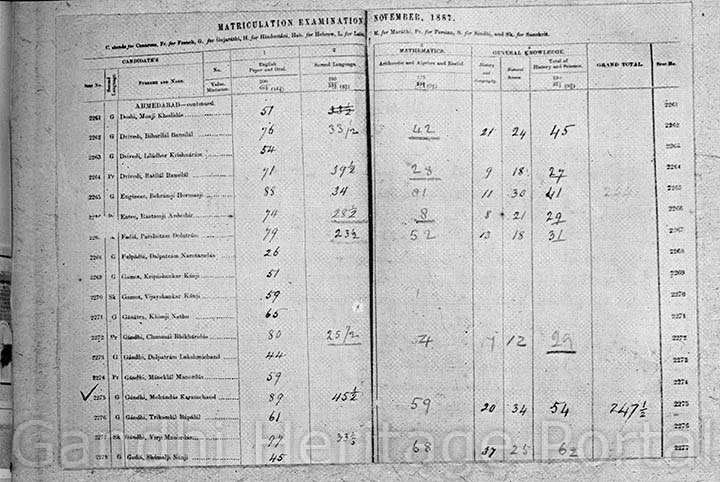 MATRICULATION EXAMINATION, NOVEMBER, 1887.
C. stands for Canarese, Fr. for French, G. for Gujaráthi, H. for Hindustáni, Heb. for Hebrew, L. for Latin, M. for Maráthi, Pr. for Persian, S. for Sindhi, and Sk. for Sanskrit.
CANDIDATE'S 1 2 MATHEMATICS. GENERAL KNOWLEDGE.
Seat No. Second Language. SURNAME AND NAME. No. English Paper and Oral. Second Language. Arithmetic and Algebra and Euclid. History and Geography. Natural Science. Total of History and Science. GRAND TOTAL. Seat No.
AHMEDABAD—continued.
2261 G Doshi, Monji Khodidás 51 33½ 2261
2262 G Dvivedi, Bihárilál Bansilál 76 33½ 42 21 24 45 2262
2263 G Dvivedi, Liládhar Krishnárám 54 2263
2264 Pr Dvivedi, Ratilál Bansilál 71 39½ 28 9 18 27 2264
2265 G Engineer, Behrámji Hormasji 88 34 11 30 41 2265
Rustamji Ardeshir 74 28½ 8 8 21 29 2266
Parshotam 79 23½ 52 13 18 31 2267
2268 G Dalpatrám Narotamdás 26 2268
2269 G Gamot, Kripáshankar Kúnji 51 2269
2270 Sk Gamot, Vijayshankar Kúnji 59 2270
2271 G Gánátra, Khimji Nathu 65 2271
2272 Pr Gándhi, Chunonál Bhikháridás 80 25½ 12 29 2272
2273 G Gándhi, Dalpatrám Lakshmichand 44 2273
2274 Pr Gándhi, Máneklál 59 2274
2275 G Gándhi, Mohándás Karamchand 89 45½ 59 20 34 54 247½ 2275
2276 G Gándhi, Trikamlál Bápálál 61 2276
2277 Sk Gándhi, Virji Mánordás 77 33½ 68 37 25 62 2277
2278 G 45
Gandhi Heritage Portal